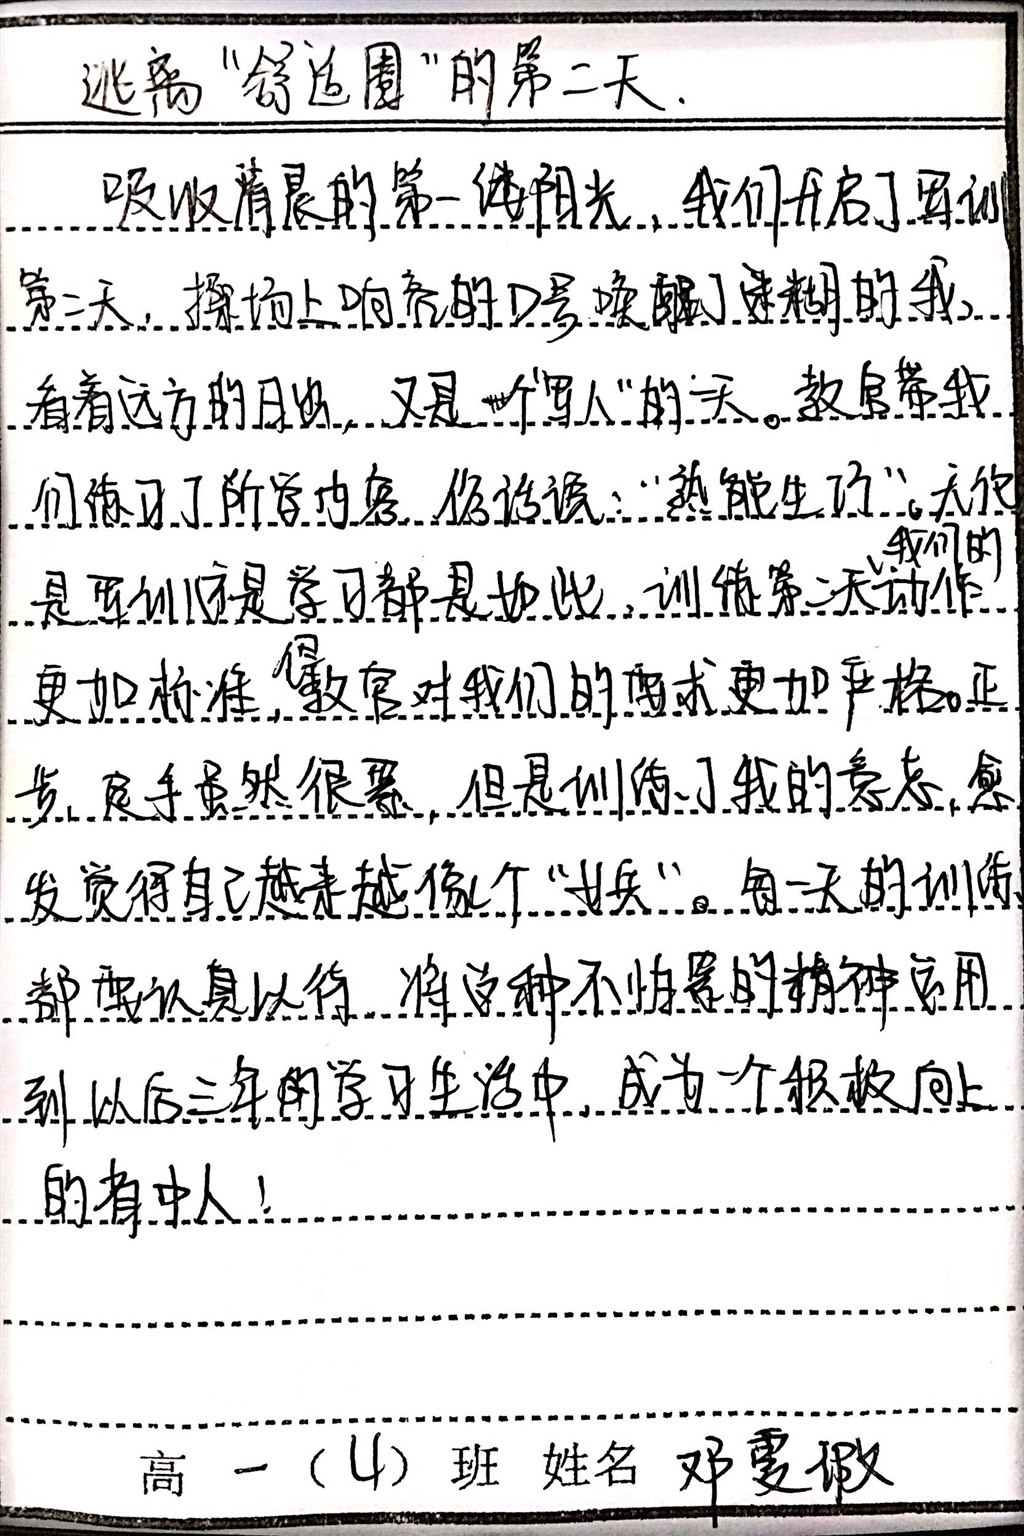 逃离“舒适圈”的第二天.
吸收清晨的第一缕阳光，我们开启了军训
第二天，操场上响亮的口号唤醒了迷糊的我，
看着远方的日出，又是一个“军人”的一天。教官带我
们练习了所学内容，俗话语：“熟能生巧”。无论
是军训还是学习都是如此，训练第二天我们的动作
更加标准，但教官对我们的要求更加严格。正
步、定手虽然很累，但是训练了我的意志，愈
发觉得自己越来越像个“女兵”。每一天的训练
都要认真以待，将这种不怕累的精神运用
到以后三年的学习生活中，成为一个积极向上
的育中人！
高一（4）班 姓名 邓雯